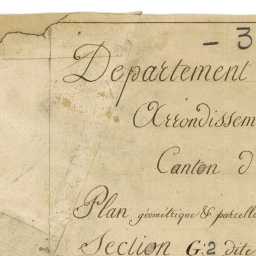 - 3
Departement
Arrondissem
Canton d
Plan géométrique & parcella
Section G:2 dite